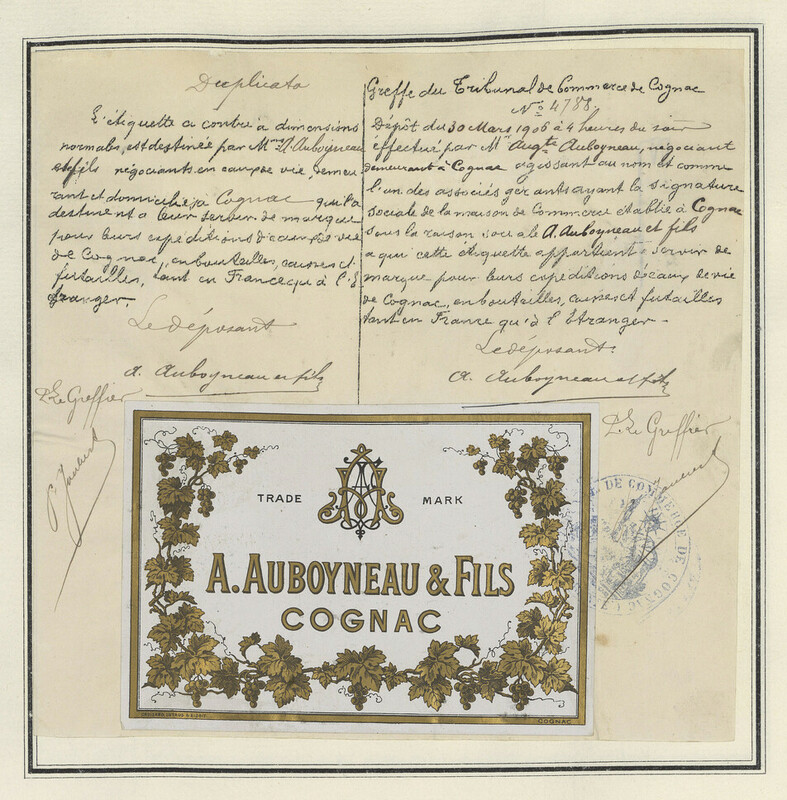 Duplicata
L'étiquette ci contre à dimensions
normales, est destinée par Mrs A. Auboyneau
et fils négociants en eaux de vie, demeu
rant et domiciliés à Cognac qui la
destinent à leur servir de marque
pour leurs expéditions d'eaux de vie
de Cognac, en bouteilles, caisses et
futailles, tant en France qu'à l'É
tranger.
Le déposant
A. Auboyneau et fils
P. Le Greffier
Greffe du Tribunal de Commerce de Cognac
No 4788
Dépôt du 30 Mars 1906 à 4 heures du soir
effectué par Mr Augte Auboyneau, négociant
demeurant à Cognac agissant au nom et comme
l'un des associés gérants ayant la signature
sociale de la maison de Commerce établie à Cognac
sous la raison sociale A. Auboyneau et fils
à qui cette étiquette appartient servir de
marque pour leurs expéditions d'eaux de vie
de Cognac, en bouteilles, caisses et futailles
tant en France qu'à l'Étranger.
Le déposant
A. Auboyneau et fils
P. Le Greffier
TRADE MARK
A. AUBOYNEAU & FILS
COGNAC
COGNAC
DE COMMERCE DE COGNAC